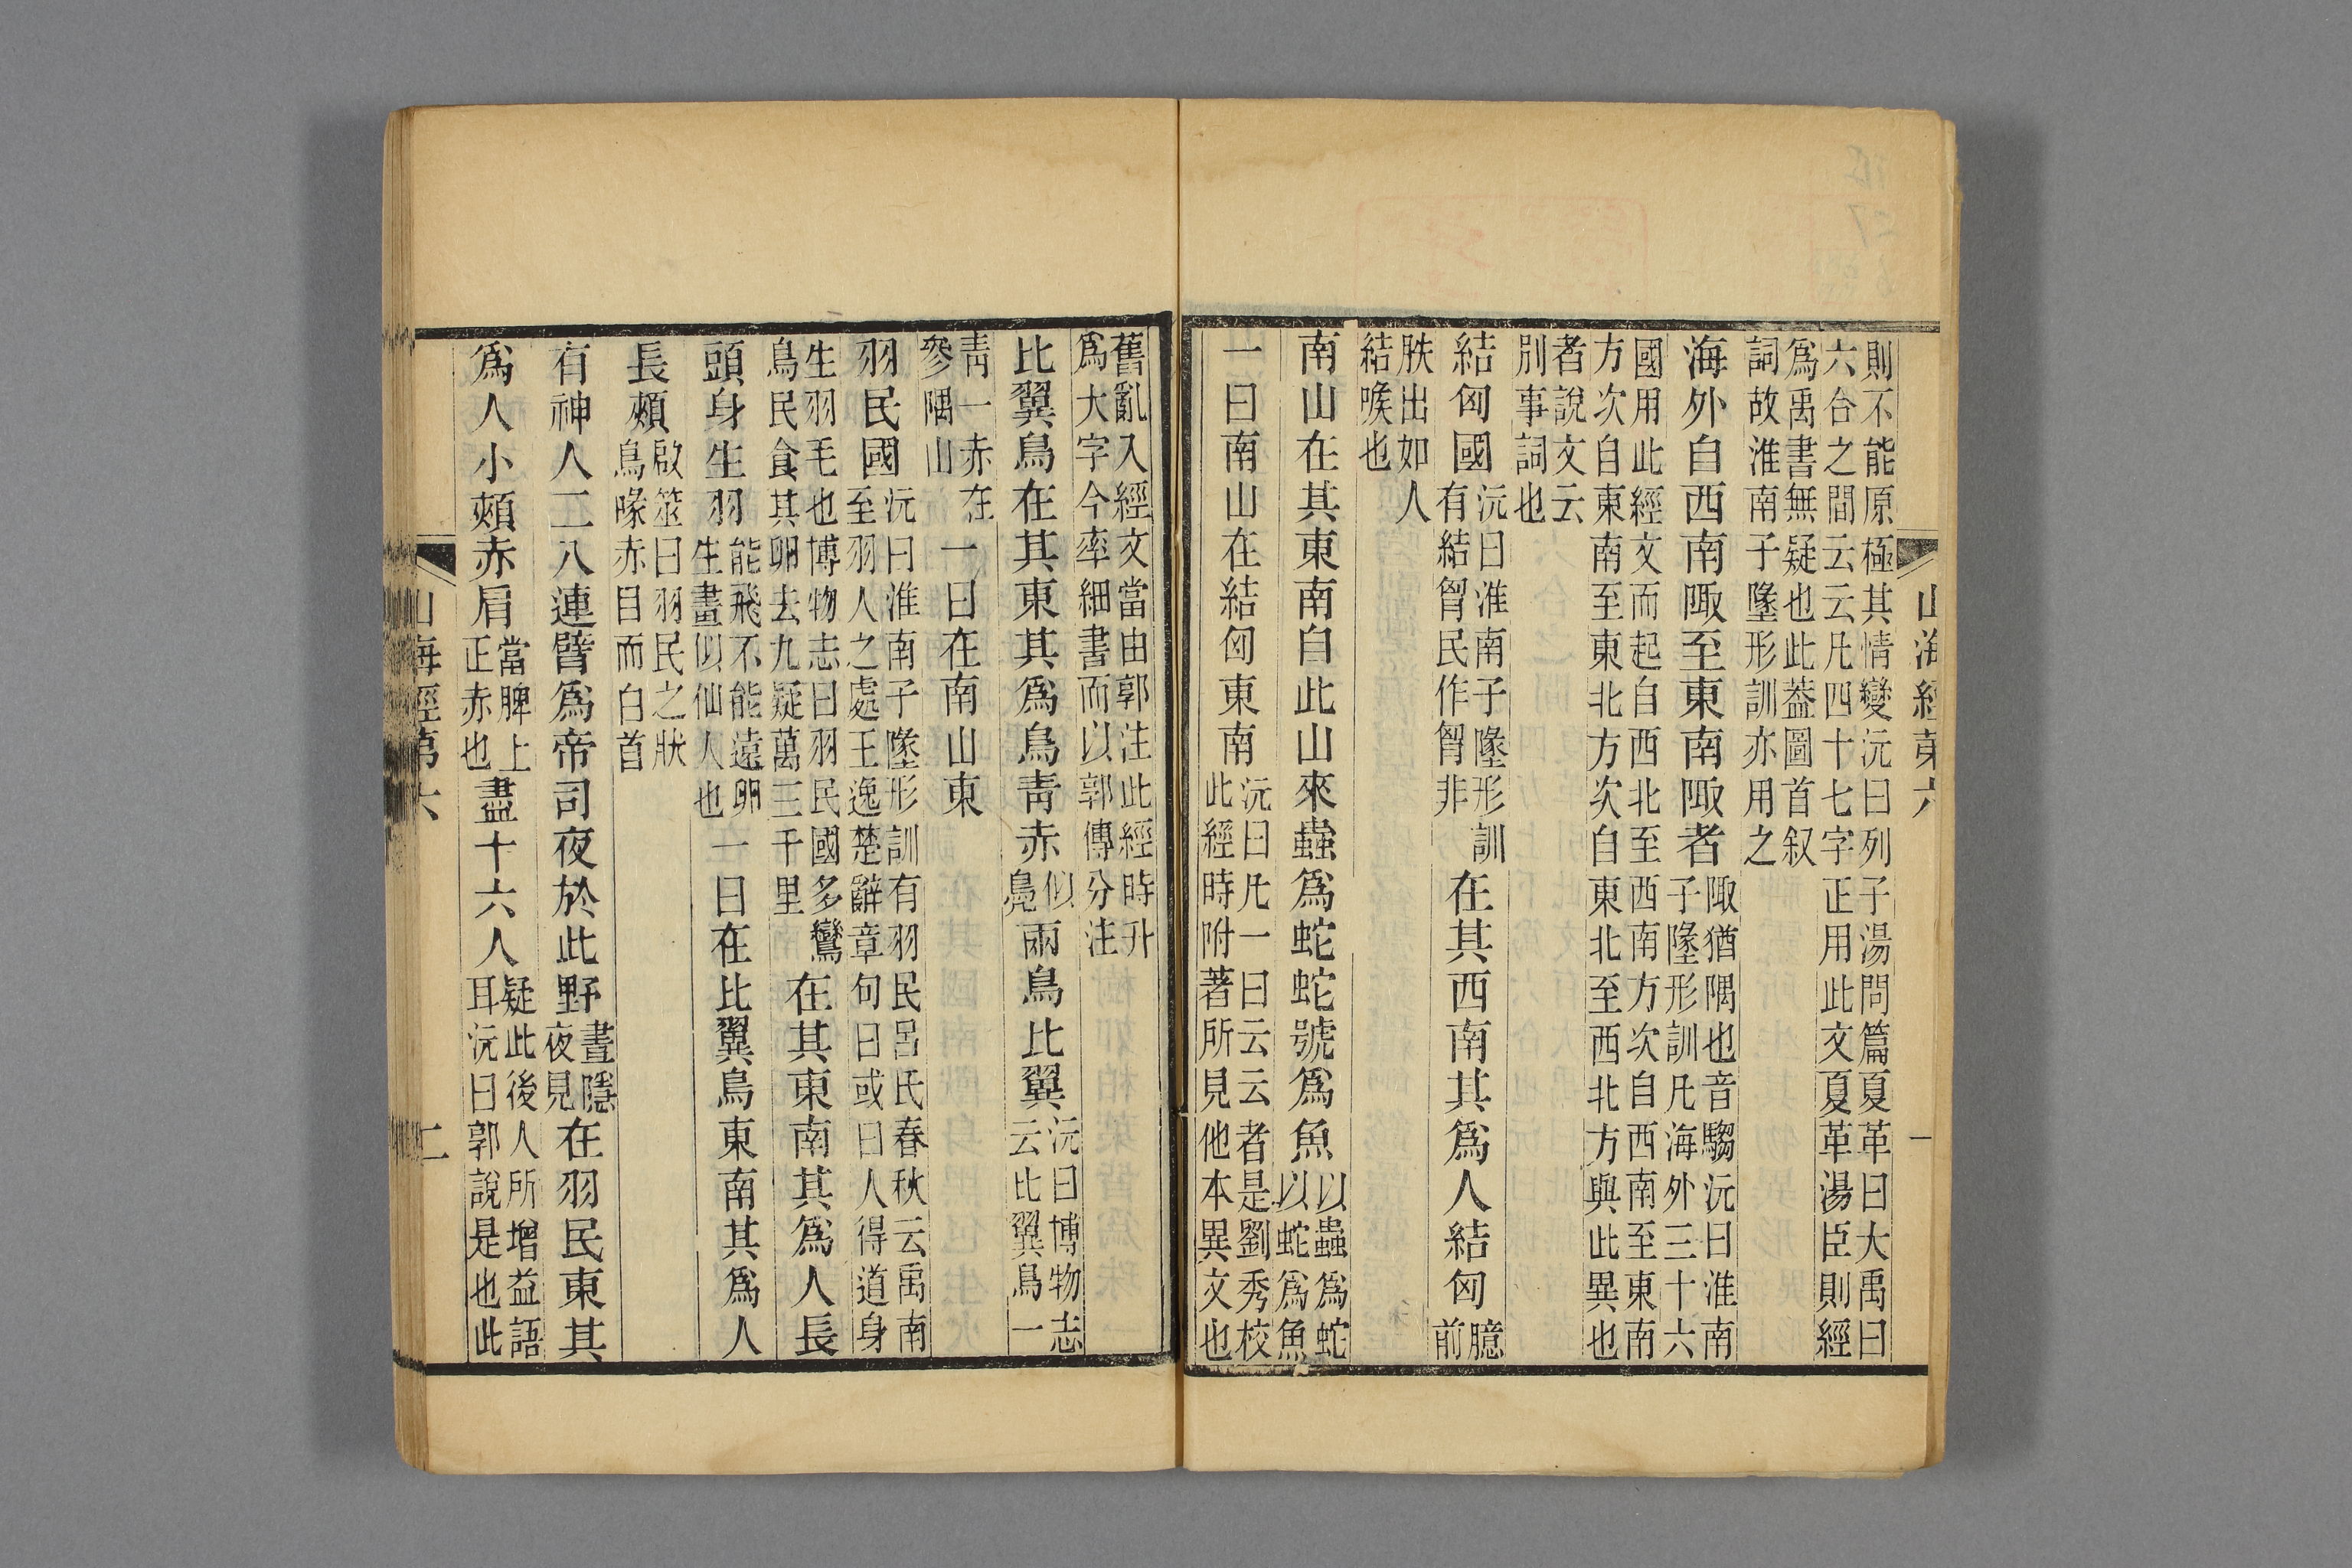 山海經弟六 一
則不能原極其情變沅曰列子湯問篇夏革曰大禹曰
六合之間云云凡四十七字正用此文夏革湯臣則經
爲禹書無疑也此葢圖首叙
詞故淮南子墬形訓亦用之
海外自西南陬至東南陬者陬猶隅也音騶沅曰淮南子墬形訓凡海外三十六
國用此經文而起自西北至西南方次自西南至東南
方次自東南至東北方次自東北至西北方與此異也
者說文云
別事詞也
結匈國沅曰淮南子墬形訓有結胷民作胷非在其西南其爲人結匈臆前
胅出如人
結喉也
南山在其東南自此山來蟲爲蛇蛇號爲魚以蟲爲蛇以蛇爲魚
一曰南山在結匈東南沅曰凡一曰云云者是劉秀校此經時附著所見他本異文也
舊亂入經文當由郭注此經時升
爲大字今率細書而以郭傳分注
比翼鳥在其東其爲鳥青赤似鳧兩鳥比翼沅曰博物志云比翼鳥一
青一赤在參隅山一曰在南山東
羽民國沅曰淮南子墬形訓有羽民呂氏春秋云禹南至羽人之處王逸楚辭章句曰或曰人得道身
生羽毛也博物志曰羽民國多鸞鳥民食其卵去九疑萬三千里在其東南其爲人長
頭身生羽能飛不能遠卵生畫似仙人也一曰在比翼鳥東南其爲人
長頰啟筮曰羽民之狀鳥喙赤目而白首
有神人二八連臂爲帝司夜於此野晝隱夜見在羽民東其
爲人小頰赤肩當脾上正赤也盡十六人疑此後人所增益語耳沅曰郭說是也此
山海經第六 二